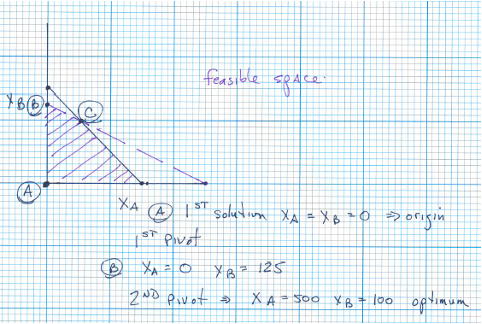 feasible space.
X_B (B)
(C)
(A)
X_A (A) 1ST solution X_A = X_B = 0 ⇒ origin
1ST Pivot
(B) X_A = 0 X_B = 125
2ND Pivot ⇒ X_A = 500 X_B = 100 optimum